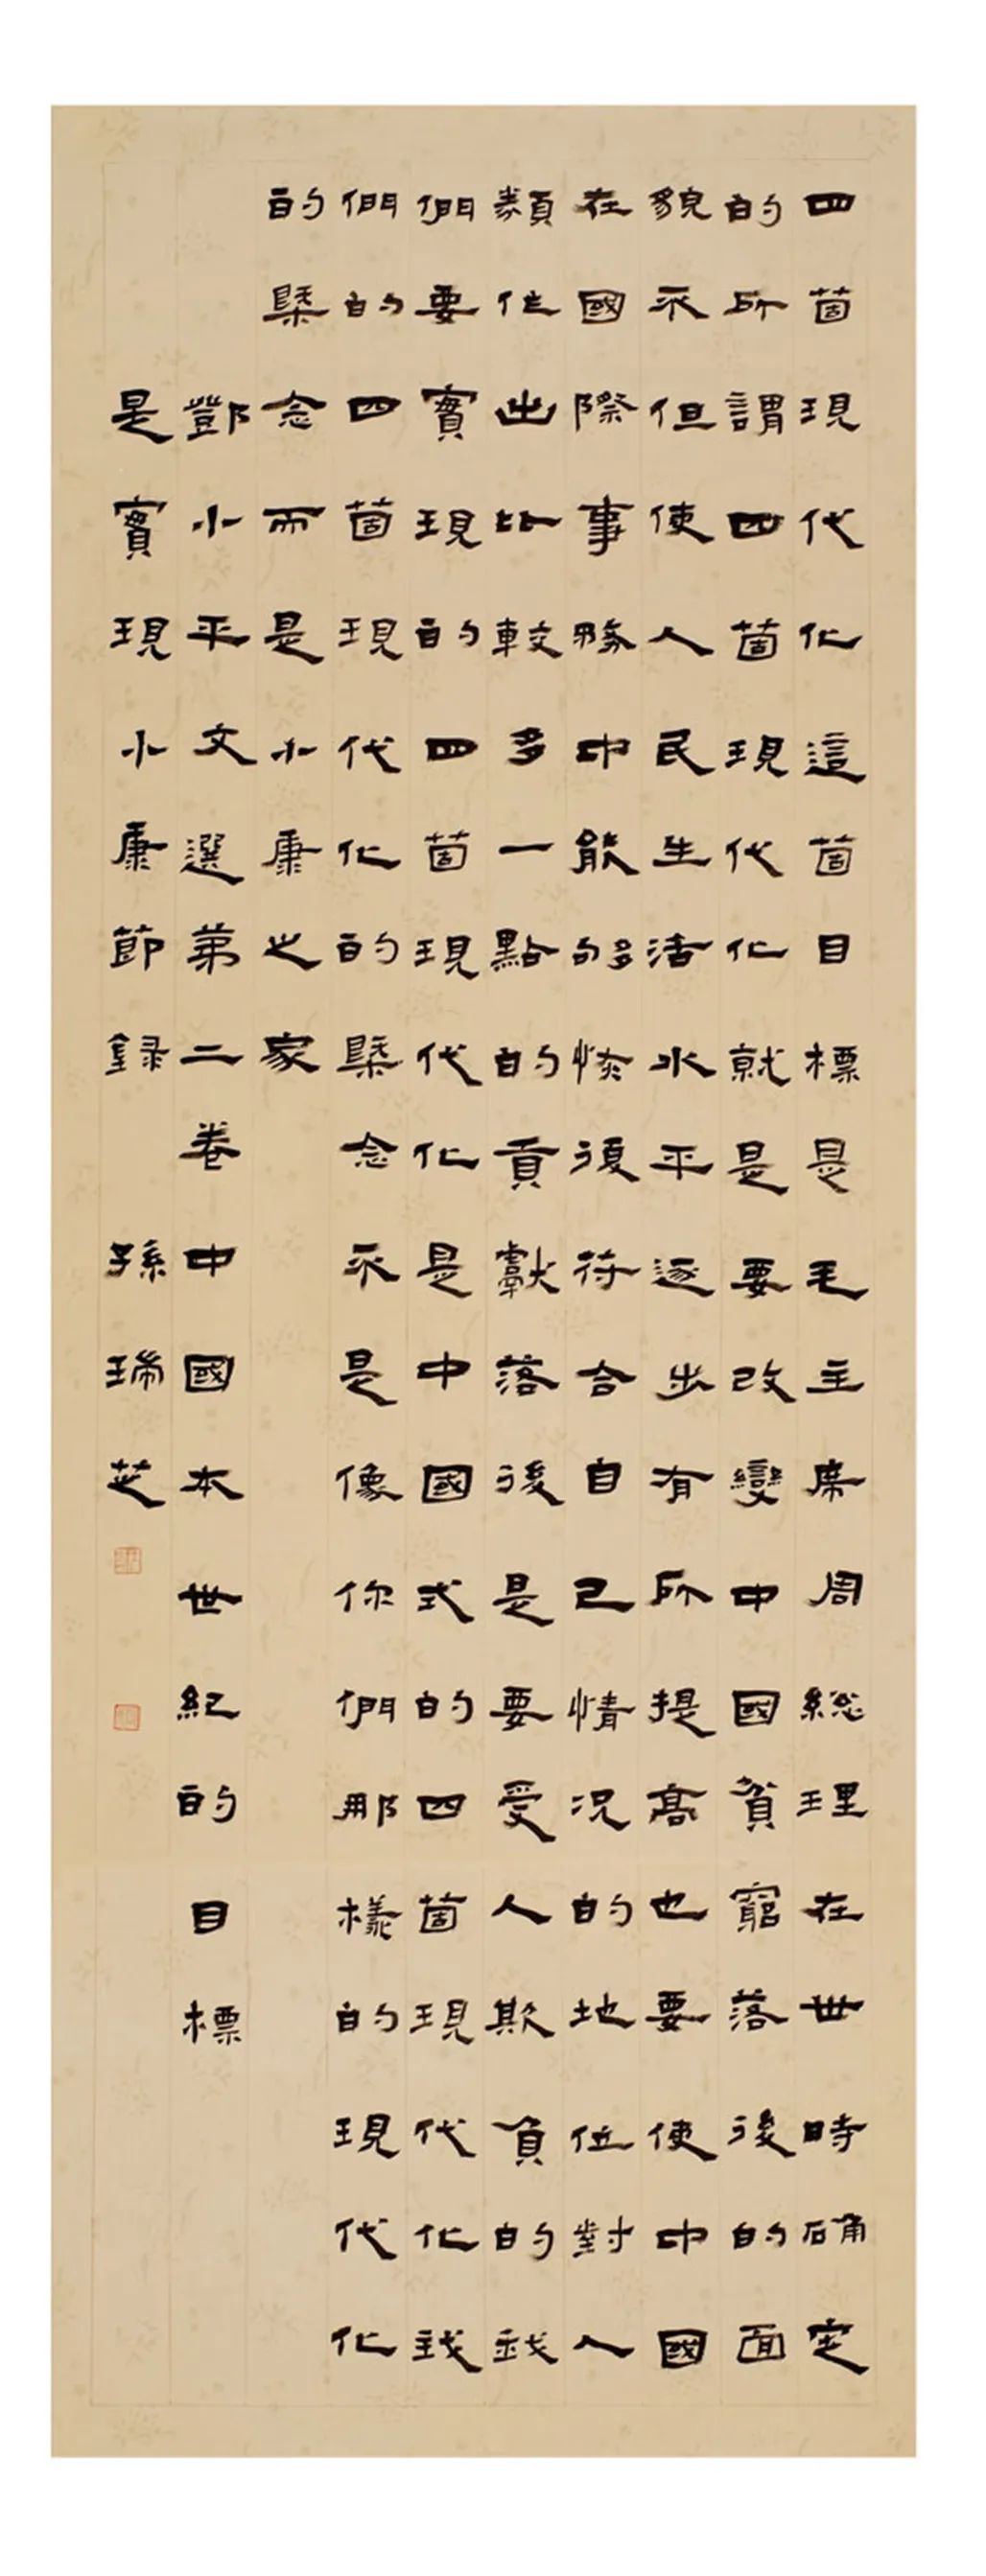 四箇現代化這箇目標是毛主席周總理在世時确定
的所謂四箇現代化就是要改變中國貧窮落後的面
貌不但使人民生活水平逐步有所提高也要使中國
在國際事務中能夠恢復符合自己情況的地位對人
類作出比較多一點的貢獻落後是要受人欺負的我
們要實現的四箇現代化是中國式的四箇現代化我
們的四箇現代化的概念不是像你們那樣的現代化
的概念而是小康之家
鄧小平文選第二卷中國本世紀的目標
是實現小康節録孫瑞芝